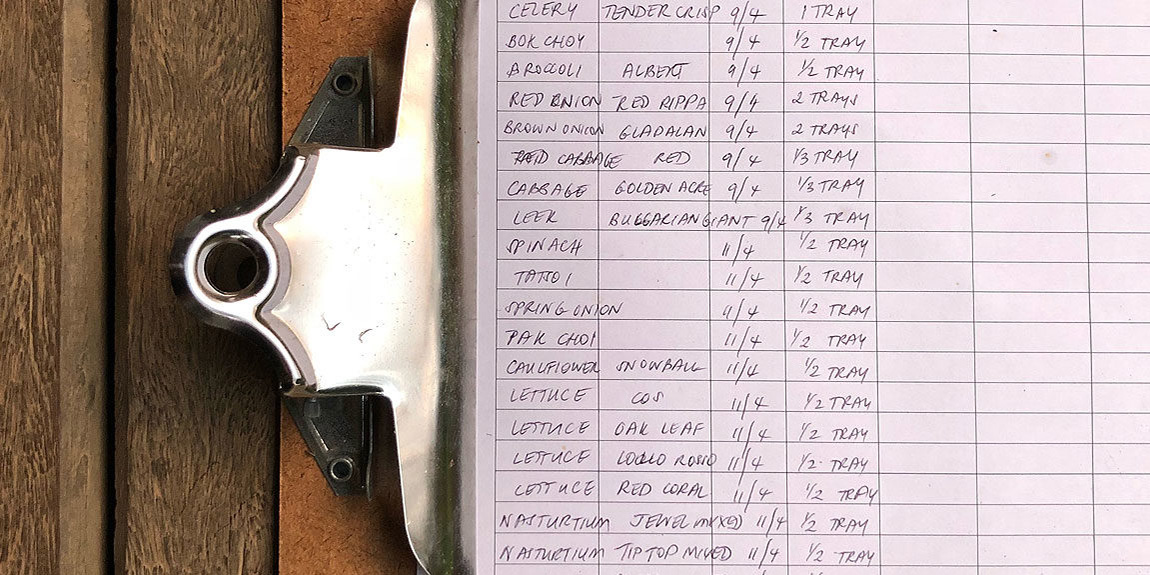 CELERY TENDER CRISP 9/4 1 TRAY
BOK CHOY 9/4 1/2 TRAY
BROCCOLI ALBERT 9/4 1/2 TRAY
RED ONION RED RIPPA 9/4 2 TRAYS
BROWN ONION GLADALAN 9/4 2 TRAYS
RED CABBAGE RED 9/4 1/3 TRAY
CABBAGE GOLDEN ACRE 9/4 1/3 TRAY
LEEK BULGARIAN GIANT 9/4 1/3 TRAY
SPINACH 11/4 1/2 TRAY
TATSOI 11/4 1/2 TRAY
SPRING ONION 9/4 1/2 TRAY
PAK CHOI 11/4 1/2 TRAY
CAULIFLOWER SNOWBALL 11/4 1/2 TRAY
LETTUCE COS 11/4 1/2 TRAY
LETTUCE OAK LEAF 11/4 1/2 TRAY
LETTUCE LOLLO ROSSO 11/4 1/2 TRAY
LETTUCE RED CORAL 11/4 1/2 TRAY
NASTURTIUM JEWEL MIXED 11/4 1/2 TRAY
NASTURTIUM TIP TOP MIXED 11/4 1/2 TRAY